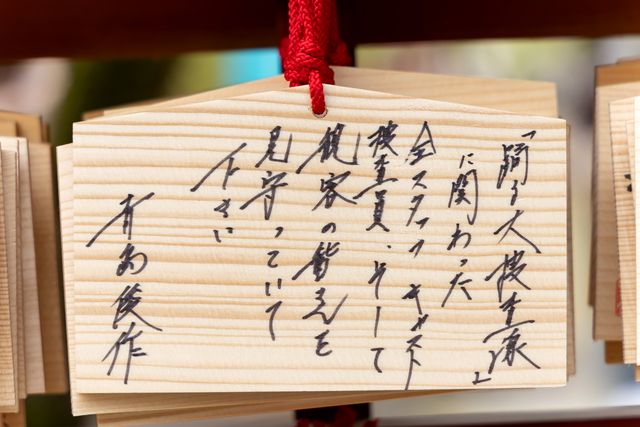 「踊る大捜査線」
に関わった
全スタッフ キャスト
捜査員、そして
観客の皆さんを
見守っていて
下さい
青島俊作